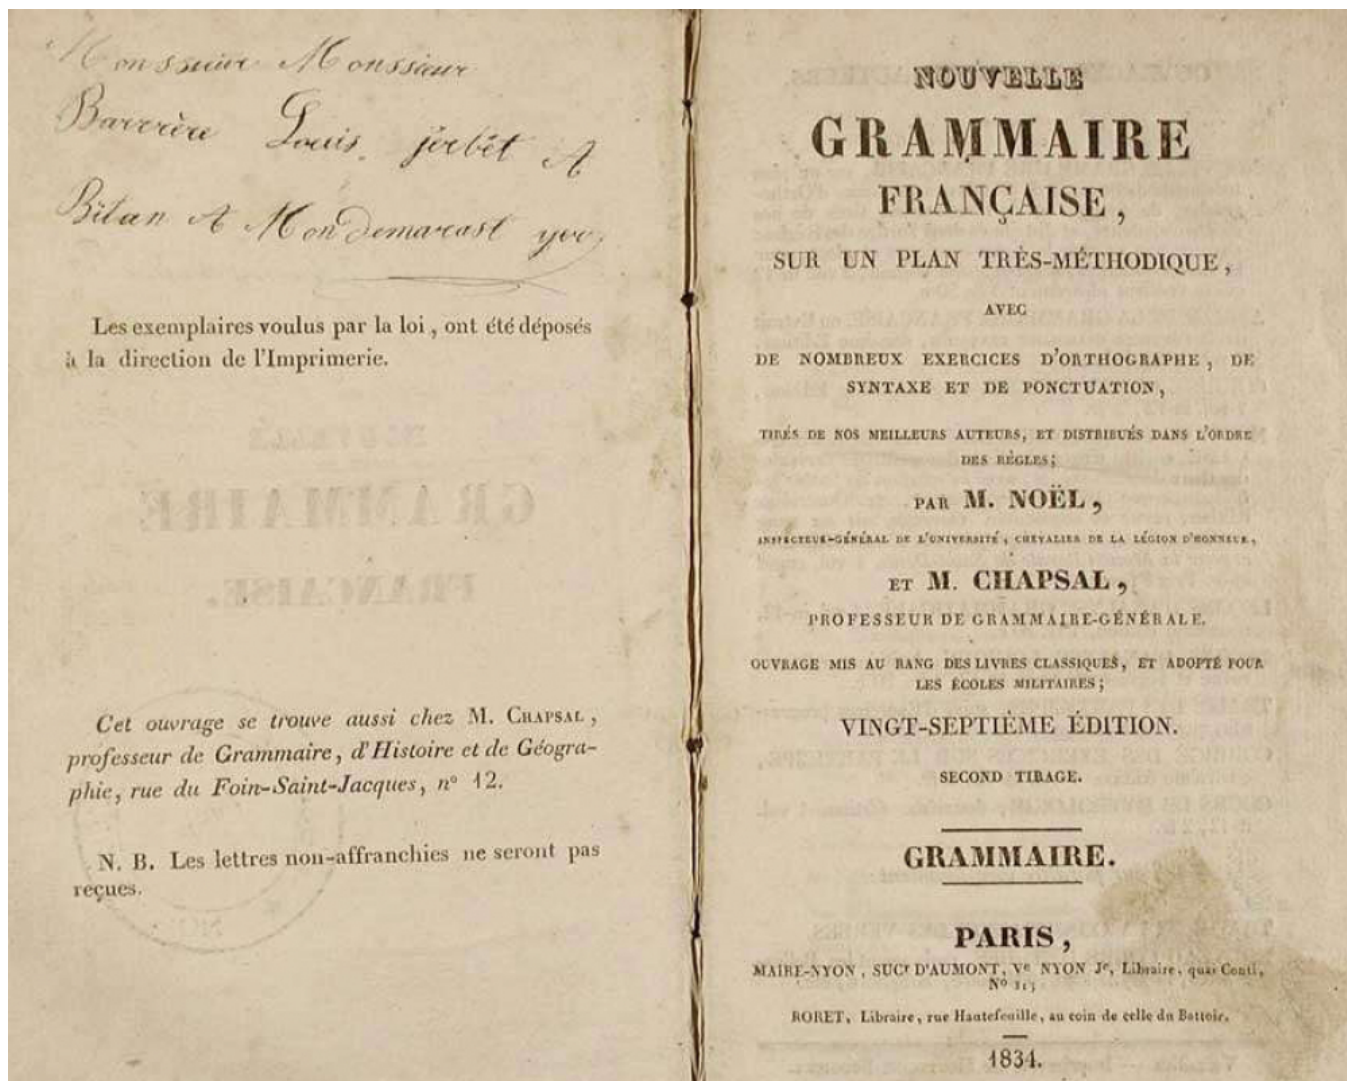 Monssieur Monssieur
Barrère Louis. A
Bilan A Mondemarast
Les exemplaires voulus par la loi, ont été déposés
à la direction de l'Imprimerie.
Cet ouvrage se trouve aussi chez M. CHAPSAL,
professeur de Grammaire, d'Histoire et de Géogra-
phie, rue du Foin-Saint-Jacques, nº 12.
N. B. Les lettres non-affranchies ne seront pas
reçues.
NOUVELLE
GRAMMAIRE
FRANÇAISE,
SUR UN PLAN TRÈS-MÉTHODIQUE,
AVEC
DE NOMBREUX EXERCICES D'ORTHOGRAPHE, DE
SYNTAXE ET DE PONCTUATION,
TIRÉS DE NOS MEILLEURS AUTEURS, ET DISTRIBUÉS DANS L'ORDRE
DES RÈGLES;
PAR M. NOËL,
INSPECTEUR-GÉNÉRAL DE L'UNIVERSITÉ, CHEVALIER DE LA LÉGION D'HONNEUR,
ET M. CHAPSAL,
PROFESSEUR DE GRAMMAIRE-GÉNÉRALE.
OUVRAGE MIS AU RANG DES LIVRES CLASSIQUES, ET ADOPTÉ POUR
LES ÉCOLES MILITAIRES;
VINGT-SEPTIÈME ÉDITION.
SECOND TIRAGE.
GRAMMAIRE.
PARIS,
MAIRE-NYON, SUCr D'AUMONT, Ve NYON Je, Libraire, quai Conti,
Nº
RORET, Libraire, rue Hautefeuille, au coin de celle du Battoir.
1834.